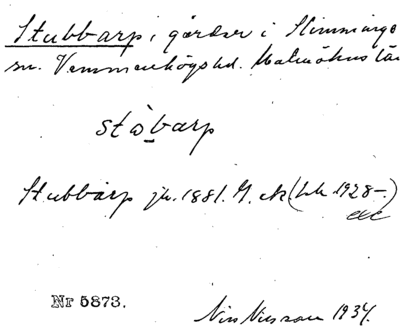 Stubbarp, gårdar i Slimminge
sn. Vemmenhögs hd. Malmöhus län
stòbarp
Stubbarp jb. 1881. G. ek (Lk 1928-.
Nr 5873.
Nils Nilsson 1934.